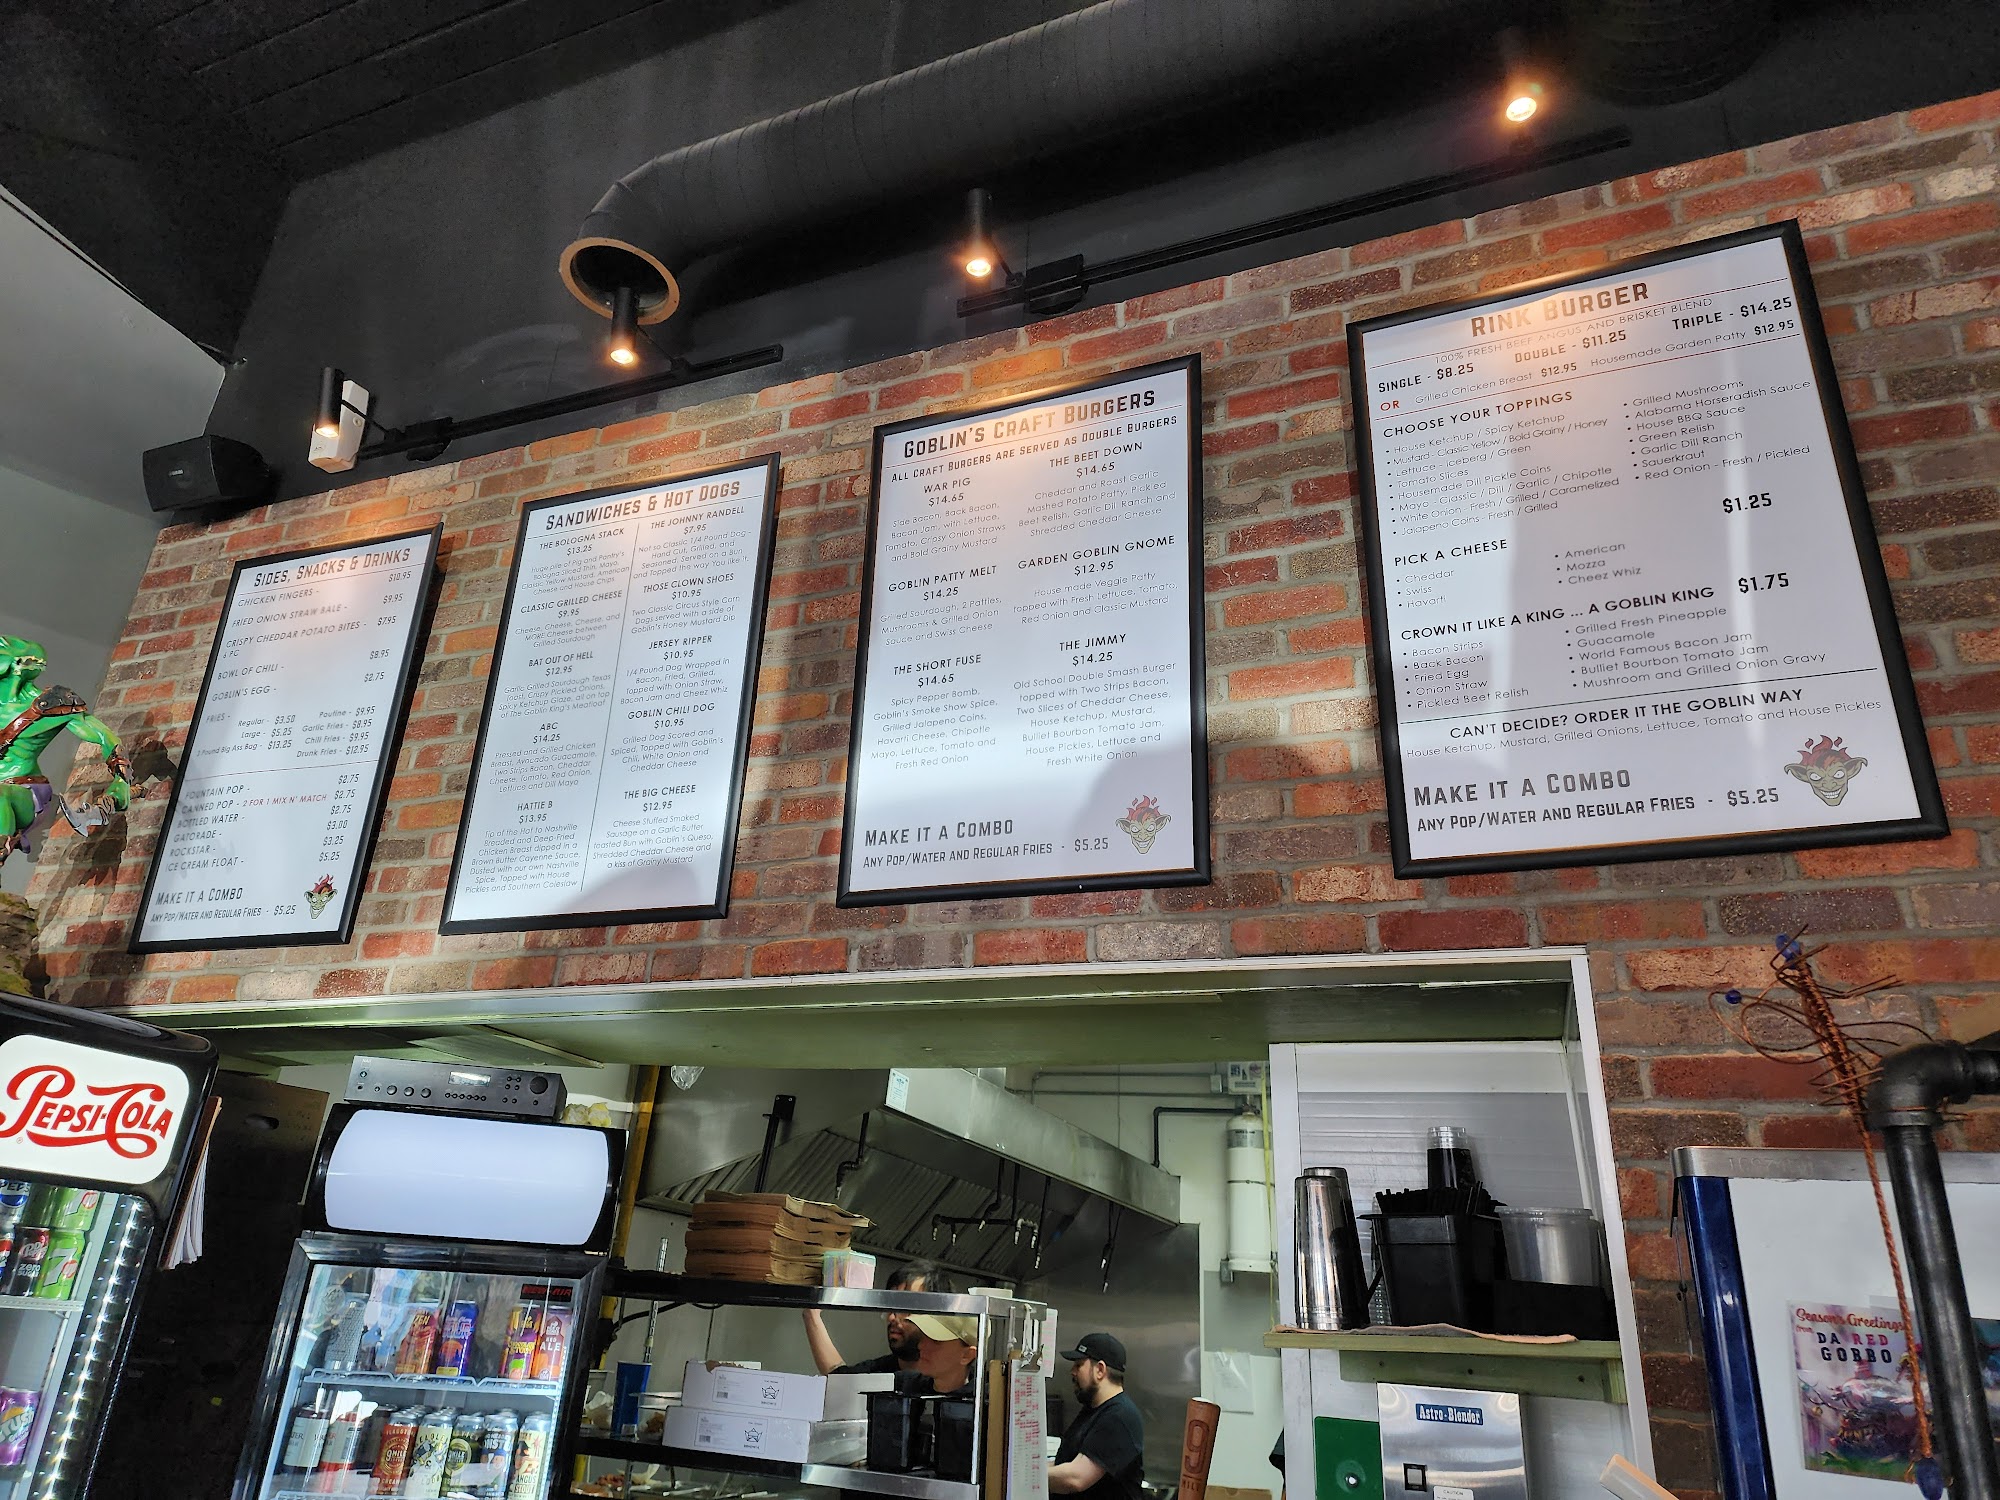 SIDES, SNACKS & DRINKS
CHICKEN FINGERS - $10.95
FRIED ONION STRAW BALE - $9.95
CRISPY CHEDDAR POTATO BITES - $7.95
6 PC
BOWL OF CHILI - $8.95
GOBLIN'S EGG - $2.75
FRIES -
Regular - $3.50
Large - $5.25
2 Pound Big Ass Bag - $13.25
Poutine - $9.95
Garlic Fries - $8.95
Chili Fries - $9.95
Drunk Fries - $12.95
FOUNTAIN POP - $2.75
CANNED POP - 2 FOR 1 MIX N' MATCH $2.75
BOTTLED WATER - $2.75
GATORADE - $3.00
ROCKSTAR - $3.25
ICE CREAM FLOAT - $5.25
MAKE IT A COMBO
ANY POP/WATER AND REGULAR FRIES - $5.25
SANDWICHES & HOT DOGS
THE BOLOGNA STACK
$13.25
Huge pile of Pig and Pantry's
Bologna Sliced Thin, Mayo,
Classic Yellow Mustard, American
Cheese and House Chips
CLASSIC GRILLED CHEESE
$9.95
Cheese, Cheese, Cheese, and
MORE Cheese between
Grilled Sourdough
BAT OUT OF HELL
$12.95
Garlic Grilled Sourdough Texas
Toast, Crispy Pickled Onions,
Spicy Ketchup Glaze, all on top
of The Goblin King's Meatloaf
ABC
$14.25
Pressed and Grilled Chicken
Breast, Avocado Guacamole,
Two Strips Bacon, Cheddar
Cheese, Tomato, Red Onion,
Lettuce and Dill Mayo
HATTIE B
$13.95
Tip of the Hat to Nashville
Breaded and Deep-Fried
Chicken Breast dipped in a
Brown Butter Cayenne Sauce,
Dusted with our own Nashville
Spice, Topped with House
Pickles and Southern Coleslaw
THE JOHNNY RANDELL
$7.95
Not so Classic 1/4 Pound Dog -
Hand Cut, Grilled, and
Seasoned. Served on a Bun
and Topped the way You like it.
THOSE CLOWN SHOES
$10.95
Two Classic Circus Style Corn
Dogs served with a side of
Goblin's Honey Mustard Dip
JERSEY RIPPER
$10.95
1/4 Pound Dog Wrapped in
Bacon, Fried, Grilled,
topped with Onion Straw,
Bacon Jam and Cheez Whiz
GOBLIN CHILI DOG
$10.95
Grilled Dog Scored and
Spiced, Topped with Goblin's
Chili, White Onion and
Cheddar Cheese
THE BIG CHEESE
$12.95
Cheese Stuffed Smoked
Sausage on a Garlic Butter
toasted Bun with Goblin's Queso,
Shredded Cheddar Cheese and
a kiss of Grainy Mustard
GOBLIN'S CRAFT BURGERS
ALL CRAFT BURGERS ARE SERVED AS DOUBLE BURGERS
WAR PIG
$14.65
Side Bacon, Back Bacon,
Bacon Jam, with Lettuce,
Tomato, Crispy Onion Straws
and Bold Grainy Mustard
GOBLIN PATTY MELT
$14.25
Grilled Sourdough, 2 Patties,
Mushrooms & Grilled Onion
Sauce and Swiss Cheese
THE SHORT FUSE
$14.65
Spicy Pepper Bomb,
Goblin's Smoke Show Spice,
Grilled Jalapeno Coins,
Havarti Cheese, Chipotle
Mayo, Lettuce, Tomato and
Fresh Red Onion
THE BEET DOWN
$14.65
Cheddar and Roast Garlic
Mashed Potato Patty, Pickled
Beet Relish, Garlic Dill Ranch and
Shredded Cheddar Cheese
GARDEN GOBLIN GNOME
$12.95
House made Veggie Patty
topped with Fresh Lettuce, Tomato,
Red Onion and Classic Mustard
THE JIMMY
$14.25
Old School Double Smash Burger
topped with Two Strips Bacon,
Two Slices of Cheddar Cheese,
House Ketchup, Mustard,
Bulliet Bourbon Tomato Jam,
House Pickles, Lettuce and
Fresh White Onion
MAKE IT A COMBO
ANY POP/WATER AND REGULAR FRIES - $5.25
RINK BURGER
100% FRESH BEEF ANGUS AND BRISKET BLEND
SINGLE - $8.25 DOUBLE - $11.25 TRIPLE - $14.25
OR Grilled Chicken Breast $12.95 Housemade Garden Patty $12.95
CHOOSE YOUR TOPPINGS
• House Ketchup / Spicy Ketchup
• Mustard - Classic Yellow / Bold Grainy / Honey
• Lettuce - Iceberg / Green
• Tomato Slices
• Housemade Dill Pickle Coins
• Mayo - Classic / Dill / Garlic / Chipotle
• White Onion - Fresh / Grilled / Caramelized
• Jalapeno Coins - Fresh / Grilled
• Grilled Mushrooms
• Alabama Horseradish Sauce
• House BBQ Sauce
• Green Relish
• Garlic Dill Ranch
• Sauerkraut
• Red Onion - Fresh / Pickled
$1.25
PICK A CHEESE
• Cheddar
• Swiss
• Havarti
• American
• Mozza
• Cheez Whiz
CROWN IT LIKE A KING ... A GOBLIN KING $1.75
• Bacon Strips
• Back Bacon
• Fried Egg
• Onion Straw
• Pickled Beet Relish
• Grilled Fresh Pineapple
• Guacamole
• World Famous Bacon Jam
• Bulliet Bourbon Tomato Jam
• Mushroom and Grilled Onion Gravy
CAN'T DECIDE? ORDER IT THE GOBLIN WAY
House Ketchup, Mustard, Grilled Onions, Lettuce, Tomato and House Pickles
MAKE IT A COMBO
ANY POP/WATER AND REGULAR FRIES - $5.25
PEPSI-COLA
Astro-Blender
CAUTION
Season's Greetings
from
DA RED
GOBBO
NEW-AIR
ZERO
SUGAR
7
Crush
ALE
9
MILE